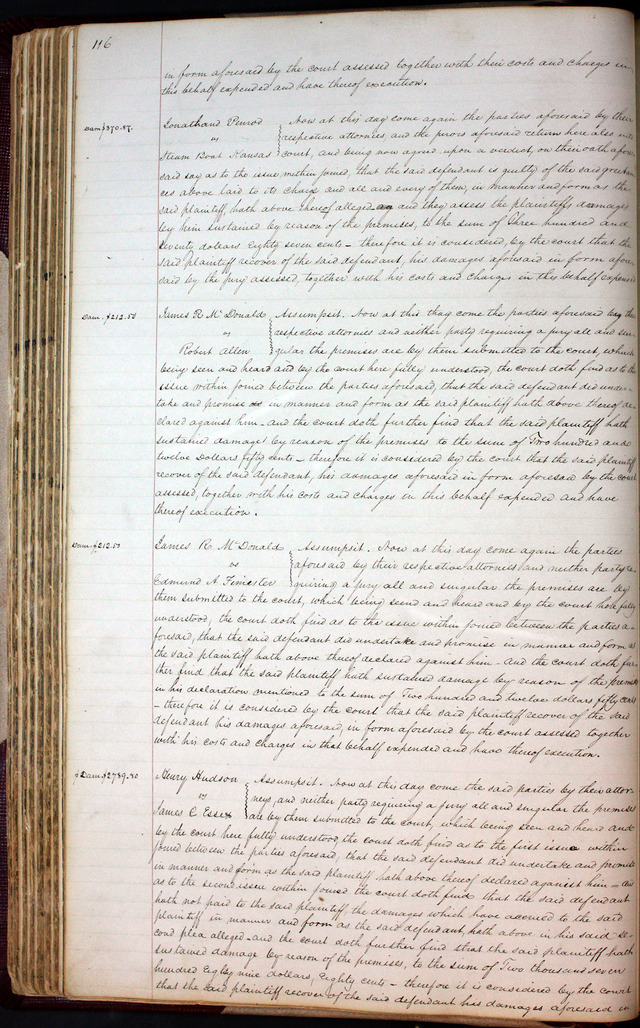 116
in form aforesaid by the court assessed together with their costs and charges in
this behalf expended and have thereof execution.
Dam. $370.87.
Jonathand Penrod
vs
Steam Boat Kansas
Now at this day come again the parties aforesaid by their
respective attornies, and the jurors aforesaid return here also into
court, and being now agreed upon a verdict, on their oath afore
said say as to the issue within joined, that the said defendant is guilty of the said grievan
ces above laid to its charge and all and every of them, in manner and form as the
said plaintiff hath above thereof alleged and they assess the plaintiff's damages
by him sustained by reason of the premises, to the sum of Three hundred and
seventy dollars Eighty seven cents – therefore it is considered, by the court that the
said plaintiff recover of the said defendant, his damages aforesaid in form afore
said by the jury assessed, together with his costs and charges in this behalf expended
Dam. $212.50
James R McDonald
vs
Robert Allen
Assumpsit. Now at this day come the parties aforesaid by their
respective attornies and neither party requiring a jury all and sin-
gular the premises are by them submitted to the court, which
being seen and heard and by the court here fully understood, the court doth find as to the
issue within joined between the parties aforesaid, that the said defendant did under-
take and promise in manner and form as the said plaintiff hath above thereof de-
clared against him – and the court doth further find that the said plaintiff hath
sustained damage by reason of the premises to the sum of Two hundred and
twelve Dollars fifty cents – therefore it is considered by the court that the said plaintiff
recover of the said defendant, his damages aforesaid in form aforesaid by the court
assessed, together with his costs and charges in this behalf expended and have
thereof execution.
Dam. $212.50
James R McDonald
vs
Edmund A.
Assumpsit. Now at this day come again the parties
aforesaid by their respective attornies and neither party re-
quiring a jury all and singular the premises are by
them submitted to the court, which being seen and heard and by the court here fully
understood, the court doth find as to the issue within joined between the parties a-
foresaid, that the said defendant did undertake and promise in manner and form as
the said plaintiff hath above thereof declared against him – and the court doth fur-
ther find that the said plaintiff hath sustained damage by reason of the premises
in his declaration mentioned to the sum of Two hundred and twelve dollars fifty cents
– therefore it is considered by the court that the said plaintiff recover of the said
defendant his damages aforesaid, in form aforesaid by the court assessed together
with his costs and charges in that behalf expended and have thereof execution.
Dam $2789.80
Henry Hudson
vs
James E Essex
Assumpsit. Now at this day come the said parties by their attor-
neys, and neither party requiring a jury all and singular the premises
are by them submitted to the court, which being seen and heard and
by the court here fully understood, the court doth find as to the first issue within
joined between the parties aforesaid, that the said defendant did undertake and promise
in manner and form as the said plaintiff hath above thereof declared against him – and
as to the second issue within joined the court doth find that the said defendant
hath not paid to the said plaintiff, the damages which have accrued to the said
plaintiff in manner and form as the said defendant, hath above in his said se-
cond plea alleged – and the court doth further find that the said plaintiff hath
sustained damage by reason of the premises, to the sum of Two thousand seven
hundred Eighty nine dollars, Eighty cents – therefore it is considered by the court
that the said plaintiff recover of the said defendant his damages aforesaid in